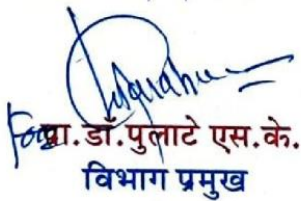 For
प्रा.डॉ.पुलाटे एस.के.
विभाग प्रमुख